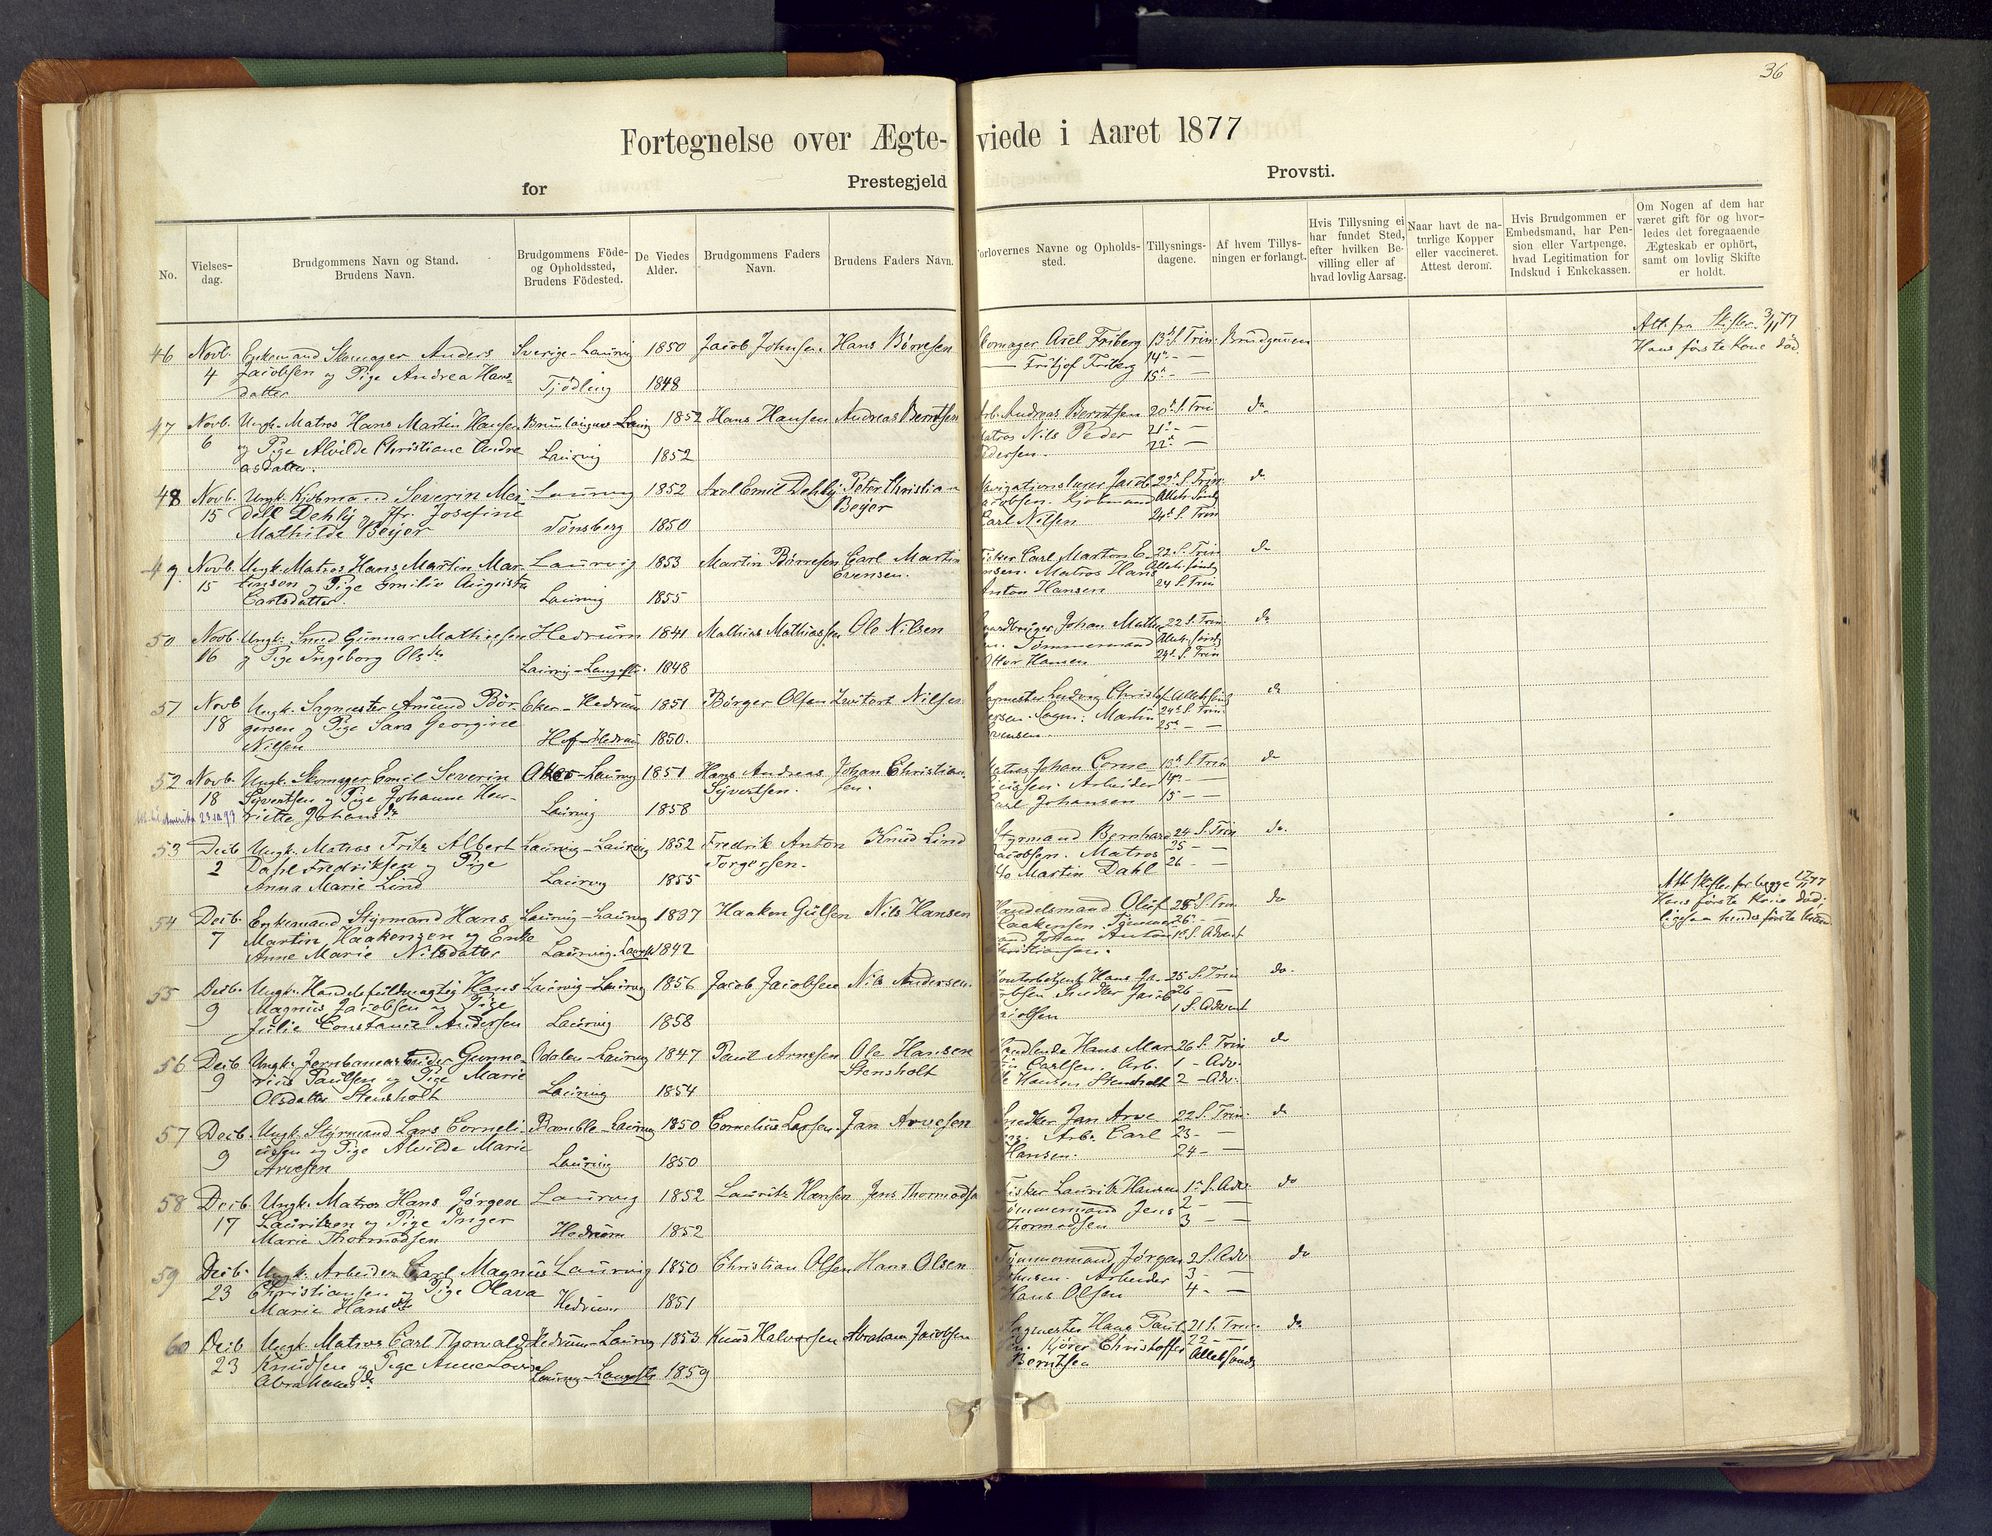 36
Fortegnelse over Ægte- viede i Aaret 1877
for Prestegjeld Provsti.
No.
Vielses-
dag.
Brudgommens Navn og Stand.
Brudens Navn.
Brudgommens Föde-
og Opholdssted,
Brudens Födested.
De Viedes
Alder.
Brudgommens Faders
Navn.
Brudens Faders Navn.
Forlovernes Navne og Opholds-
sted.
Tillysnings-
dagene.
Af hvem Tillys-
ningen er forlangt.
Hvis Tillysning ei
har fundet Sted,
efter hvilken Be-
villing eller af
hvad lovlig Aarsag.
Naar havt de na-
turlige Kopper
eller vaccineret.
Attest derom.
Hvis Brudgommen er
Embedsmand, har Pen-
sion eller Vartpenge,
hvad Legitimation for
Indskud i Enkekassen.
Om Nogen af dem har
været gift för og hvor-
ledes det foregaaende
Ægteskab er ophört,
samt om lovlig Skifte
er holdt.
46 Novb. Enkemand Skomager Anders Sverige-Laurvig 1850 Jacob Johnsen. Hans Børresen Skomager Axel Friberg 13de S. Trin. Brudgommen Att. fra Skifter. 3/11 77
4 Jacobsen og Pige Andrea Hans- — Fritjof Friberg 14de - — Hans første Kone död.
datter Tjödling 1848 15de - —
47 Novb. Ungk. Matros Hans Martin Hansen Brunlaugnes-Laurvig 1852 Hans Hansen Andreas Berntsen Arb. Andreas Berntsen 20de S. Tri do
6 og Pige Alvilde Christiane Andre Matros Nils Peder 21de - —
asdatter. Laurvig 1852 Pedersen. 22de —
48 Novb. Ungk. Kjöbmand Severin Mei Laurvig 1852 Axel Emil Dehly Peter Christian Navigationslærer Jacob 22de S. Trin do
15 dell Dehly og Jfr. Josefine Beyer Jacobsen. Kjobmand Alleh. Sönd
Mathilde Beyer Tönsberg 1850 Carl Nilsen 24de S. Trin
49 Novb. Ungk. Matros Hans Martin Mar Laurvig 1853 Martin Börresen Carl Martin Fisker Carl Martin E 22 S. Trin do
15 tinsen og Pige Emilie Augusta Evensen. Matros Hans Alleh. Sönd
Carlsdatter. Laurvig 1855 Anton Hansen 24 S. Trin
50 Novb. Ungk. Smed Gunnar Mathiesen Hedrum 1841 Mathias Mathiassen Ole Nilsen Gaardbruger Johan Math 22 S. Trin. do
16 og Pige Ingeborg Olsdtr Tømmermand Alleh. Sönd
Laurvig-Langestr. 1848 Hansen 24de S. Trin
51 Novb Ungk. Sagmester Amund Bör Eker-Hedrum 1851 Börger Olsen Nilsen Sagmester Ludvig Christof Alleh. Sönd do
18 gersen og Pige Sara Georgine Martin 24de S. Trin
Nilsen Hof-Hedrum 1850. Svensen 25de —
52 Novb. Ungk. Skomager Emil Severin Aker-Laurvig 1851 Hans Andreas Johan Christian Matros Johan 13de S. Trin do
18 Syvertsen og Pige Johanne Hen- Syvertsen. sen. Arbeider 14de - —
riette Johansdtr Laurvig 1858 Carl Johansen 15 - —
53 Decb Ungk. Matros Fritz Albert Laurvig-Laurvig 1852 Fredrik Anton Knud Lind Styrmand Bernhard 24 S. Trin do.
2 Dahl Fredriksen og Pige Torgersen. Jacobsen. Matros 25 - —
Anna Marie Lind Laurvig 1855 Martin Dahl 26 - —
54 Decb. Enkemand Styrmand Hans Laurvig-Laurvig 1837 Haaken Gulsen Nils Hansen Handelsmand Oluf 25 S. Trin. do Att. Skifter for begge 17/11 77
7 Martin Haakensen og Enke Haakensen. Tömmer 26 - — Hans første Kone död.
Anne Marie Nilsdatter Laurvig-Langestr 1842 mand Johan Anton 1ste S. Advent ligesaa hendes første Mand
Christiansen.
55 Decb. Ungk. Handelsfuldmægtig Hans Laurvig-Laurvig 1856 Jacob Jacobsen Nils Andersen. Hans Ja- 25 S. Trin do.
9 Magnus Jacobsen og Pige Snedker Jacob 26 - —
Julie Constance Andersen Laurvig 1858 1 S. Advent
56 Decb Ungk. Jernbanearbeider Gunne- Odalen-Laurvig 1847 Paul Arnesen Ole Hansen Handlende Hans Mar 26 S. Trin do
9 rius Paulsen og Pige Marie Stensholt tin Carlsen. Arb. 1 - Adv.
Olsdatter Stensholt Laurvig 1854 Ole Hansen Stensholt 2 - Adv.
57 Decb. Ungk. Styrmand Lars Corneli- Bamble-Laurvig 1850 Cornelius Larsen. Jan Arvesen Snedker Jan Arve 22 S. Trin. do
9 ussen og Pige Alvilde Marie sen. Arb. Carl 23 - —
Arvesen Laurvig 1850 Hansen. 24 - —
58 Decb. Ungk. Matros Hans Jörgen Laurvig 1852 Lauritz Hansen Jens Thormodsen Fisker Lauritz Hansen 1ste S. Adv. do
17 Lauritzen og Pige Inger Tömmermand Jens 2 - —
Marie Thormodsen Hedrum 1852 Thormodsen 3 - —
59 Decb. Ungk. Arbeider Carl Magnus Laurvig 1850 Christian Olsen Hans Olsen Tömmermand Jörgen 2 S. Adv. do
23 Christiansen og Pige Olava Johnsen. Arbeider 3 - —
Marie Hansdtr Hedrum 1851 Hans Olsen 4 - —
60 Decb Ungk. Matros Carl Thorvald Hedrum-Laurvig 1853 Knud Halvorsen Abraham Jacobsen Sagmester Hans Paul 21 S. Trin. do
23 Knudsen og Pige Anne Lovise sen. Kjörer Christoffer 22 - —
Abrahamsdtr Laurvig-Langestr 1859 Berntsen Allehsönds